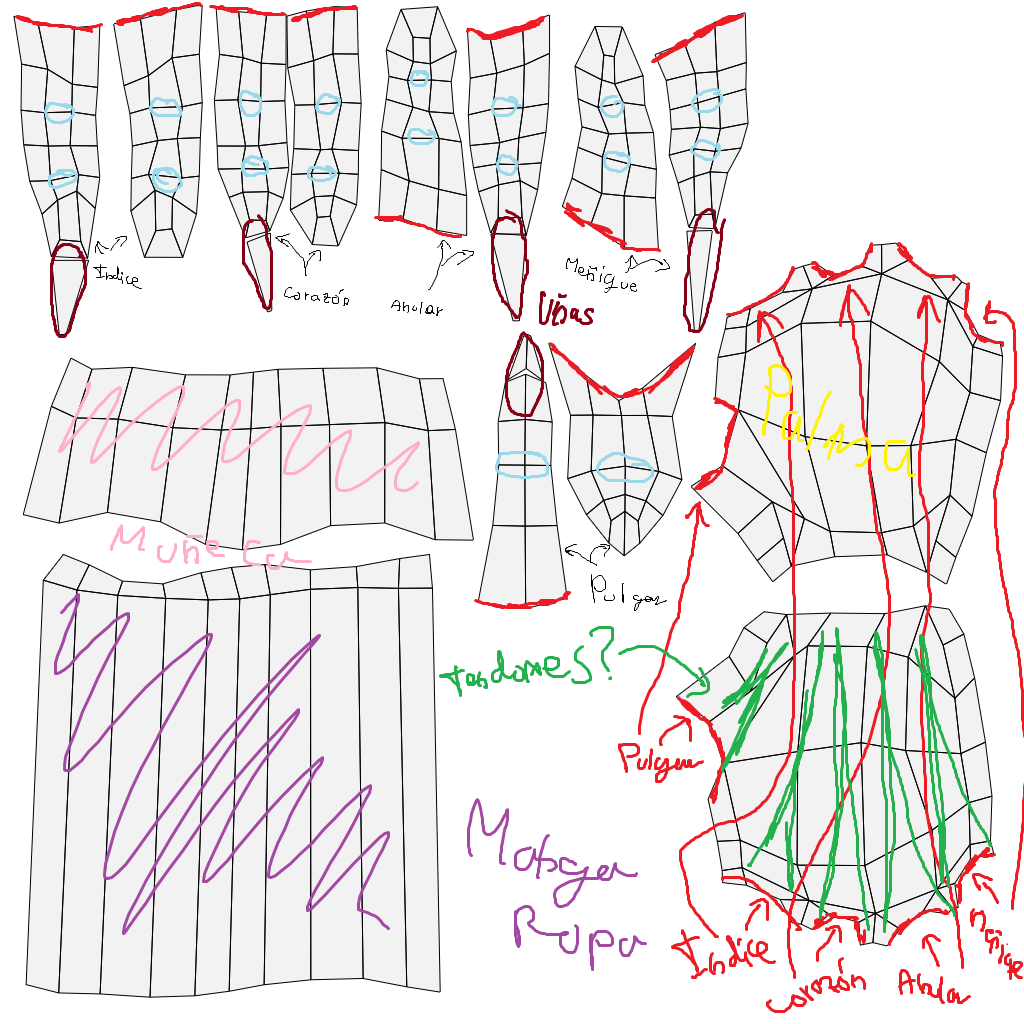 Indice
Corazón
Anular
Uñas
Meñique
Palma
Muñeca
Pulgar
tendones?
Pulgar
Manga
Ropa
Indice
corazón
Anular
Meñique